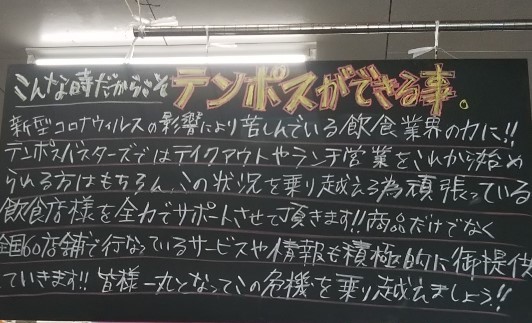 こんな時だからこそ テンポスができる事。
新型コロナウィルスの影響により苦しんでいる飲食業界の力に!!
テンポスバスターズではテイクアウトやランチ営業をこれから始め
られる方はもちろん、この状況を乗り越える為頑張っている
飲食店様を全力でサポートさせて頂きます!!商品だけでなく
全国60店舗で行なっているサービスや情報も積極的に御提供
していきます!! 皆様一丸となってこの危機を乗り越えましょう!!